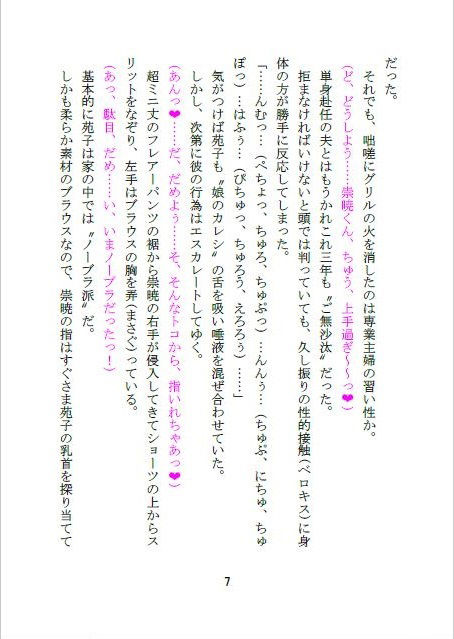 だった。
それでも、咄嗟にグリルの火を消したのは専業主婦の習い性か。
(ど、どうしよう……崇暁くん、ちゅう、上手過ぎ～～っ❤)
単身赴任の夫とはもうかれこれ三年も〝ご無沙汰〟だった。
拒まなければいけないと頭では判っていても、久し振りの性的接触(ベロキス)に身
体の方が勝手に反応してしまった。
「……んむっ… (ぺちょっ、ちゅろ、ちゅぷっ) …んんぅ… (ちゅぶ、にちゅ、ちゅ
ぽっ) …はふぅ… (ぴちゅっ、ちゅろう、えろろぅ) ……」
気がつけば苑子も〝娘のカレシ〟の舌を吸い唾液を混ぜ合わせていた。
しかし、次第に彼の行為はエスカレートしてゆく。
(あんっ❤……だ、だめよぅ……そ、そんなトコから、指いれちゃあっ❤)
超ミニ丈のフレアーパンツの裾から崇暁の右手が侵入してきてショーツの上からス
リットをなぞり、左手はブラウスの胸を弄(まさぐ)っている。
(あっ、駄目、だめ……い、いまノーブラだったっ！)
基本的に苑子は家の中では〝ノーブラ派〟だ。
しかも柔らか素材のブラウスなので、崇暁の指はすぐさま苑子の乳首を探り当てて
7